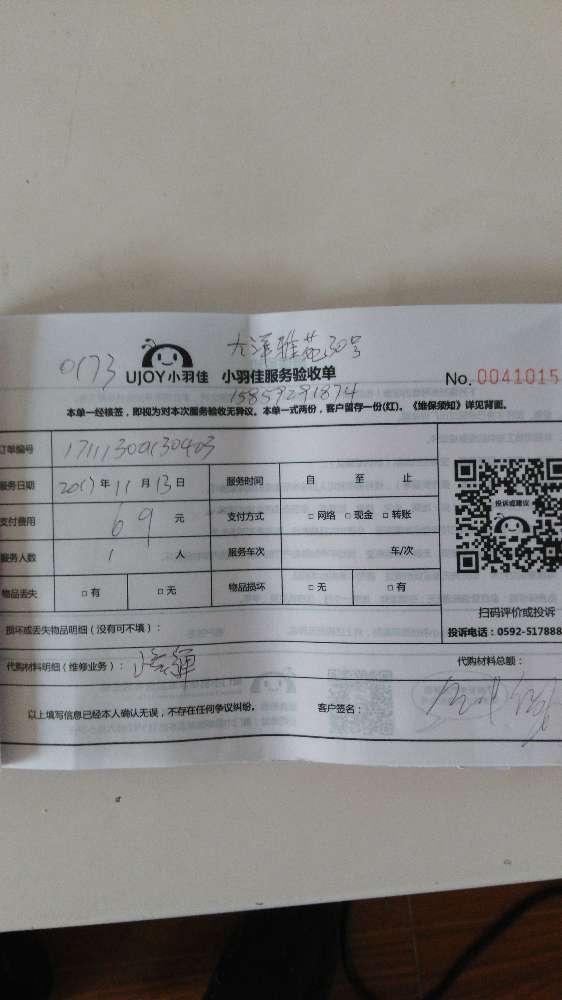 大洋雅苑30号
0173
UJOY小羽佳 小羽佳服务验收单
No. 0041015
15859291874
本单一经核签，即视为对本次服务验收无异议。本单一式两份，客户留存一份(红)。《维保须知》详见背面。
订单编号 17111300130403
服务日期 2017年11月13日 服务时间 自 至 止
支付费用 69元 支付方式 □网络 □现金 □转账
服务人数 1人 服务车次 车/次
物品丢失 □有 □无 物品损坏 □无 □有
投诉或建议
扫码评价或投诉
损坏或丢失物品明细（没有可不填）：
投诉电话：0592-517888
代购材料明细（维修业务）：
代购材料总额：
以上填写信息已经本人确认无误，不存在任何争议纠纷。 客户签名：